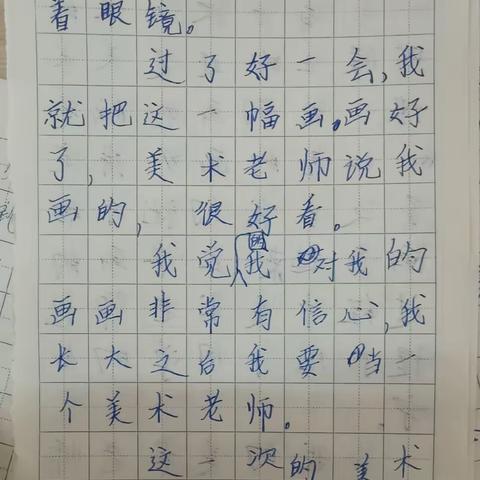 着眼镜。
过了好一会,我
就把这一幅画。画好
了,美术老师说我
画的,很好看。
我觉的我对我的
画画非常有信心,我
长大之后我要当一
个美术老师。
这一次的美术